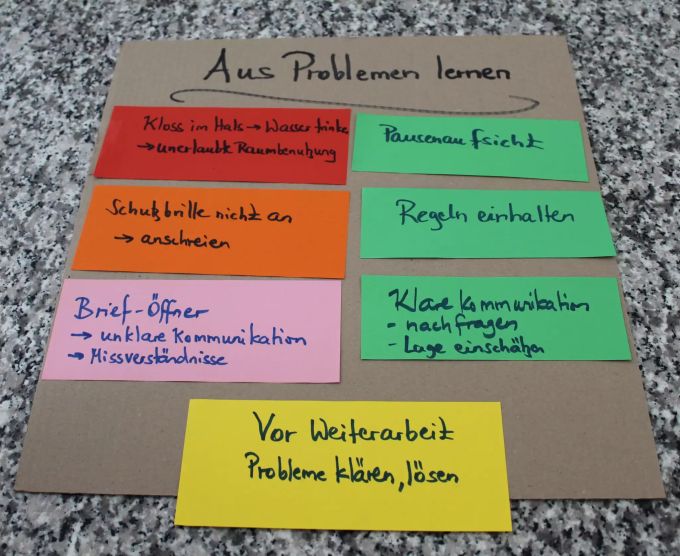 Aus Problemen lernen
Kloss im Hals → Wasser trinke
→ unerlaubte Raumbenutzung
Pausenaufsicht
Schutzbrille nicht an
→ anschreien
Regeln einhalten
Brief-Öffner
→ unklare Kommunikation
→ Missverständnisse
Klare Kommunikation
- nachfragen
- Lage einschätzen
Vor Weiterarbeit
Probleme klären, lösen